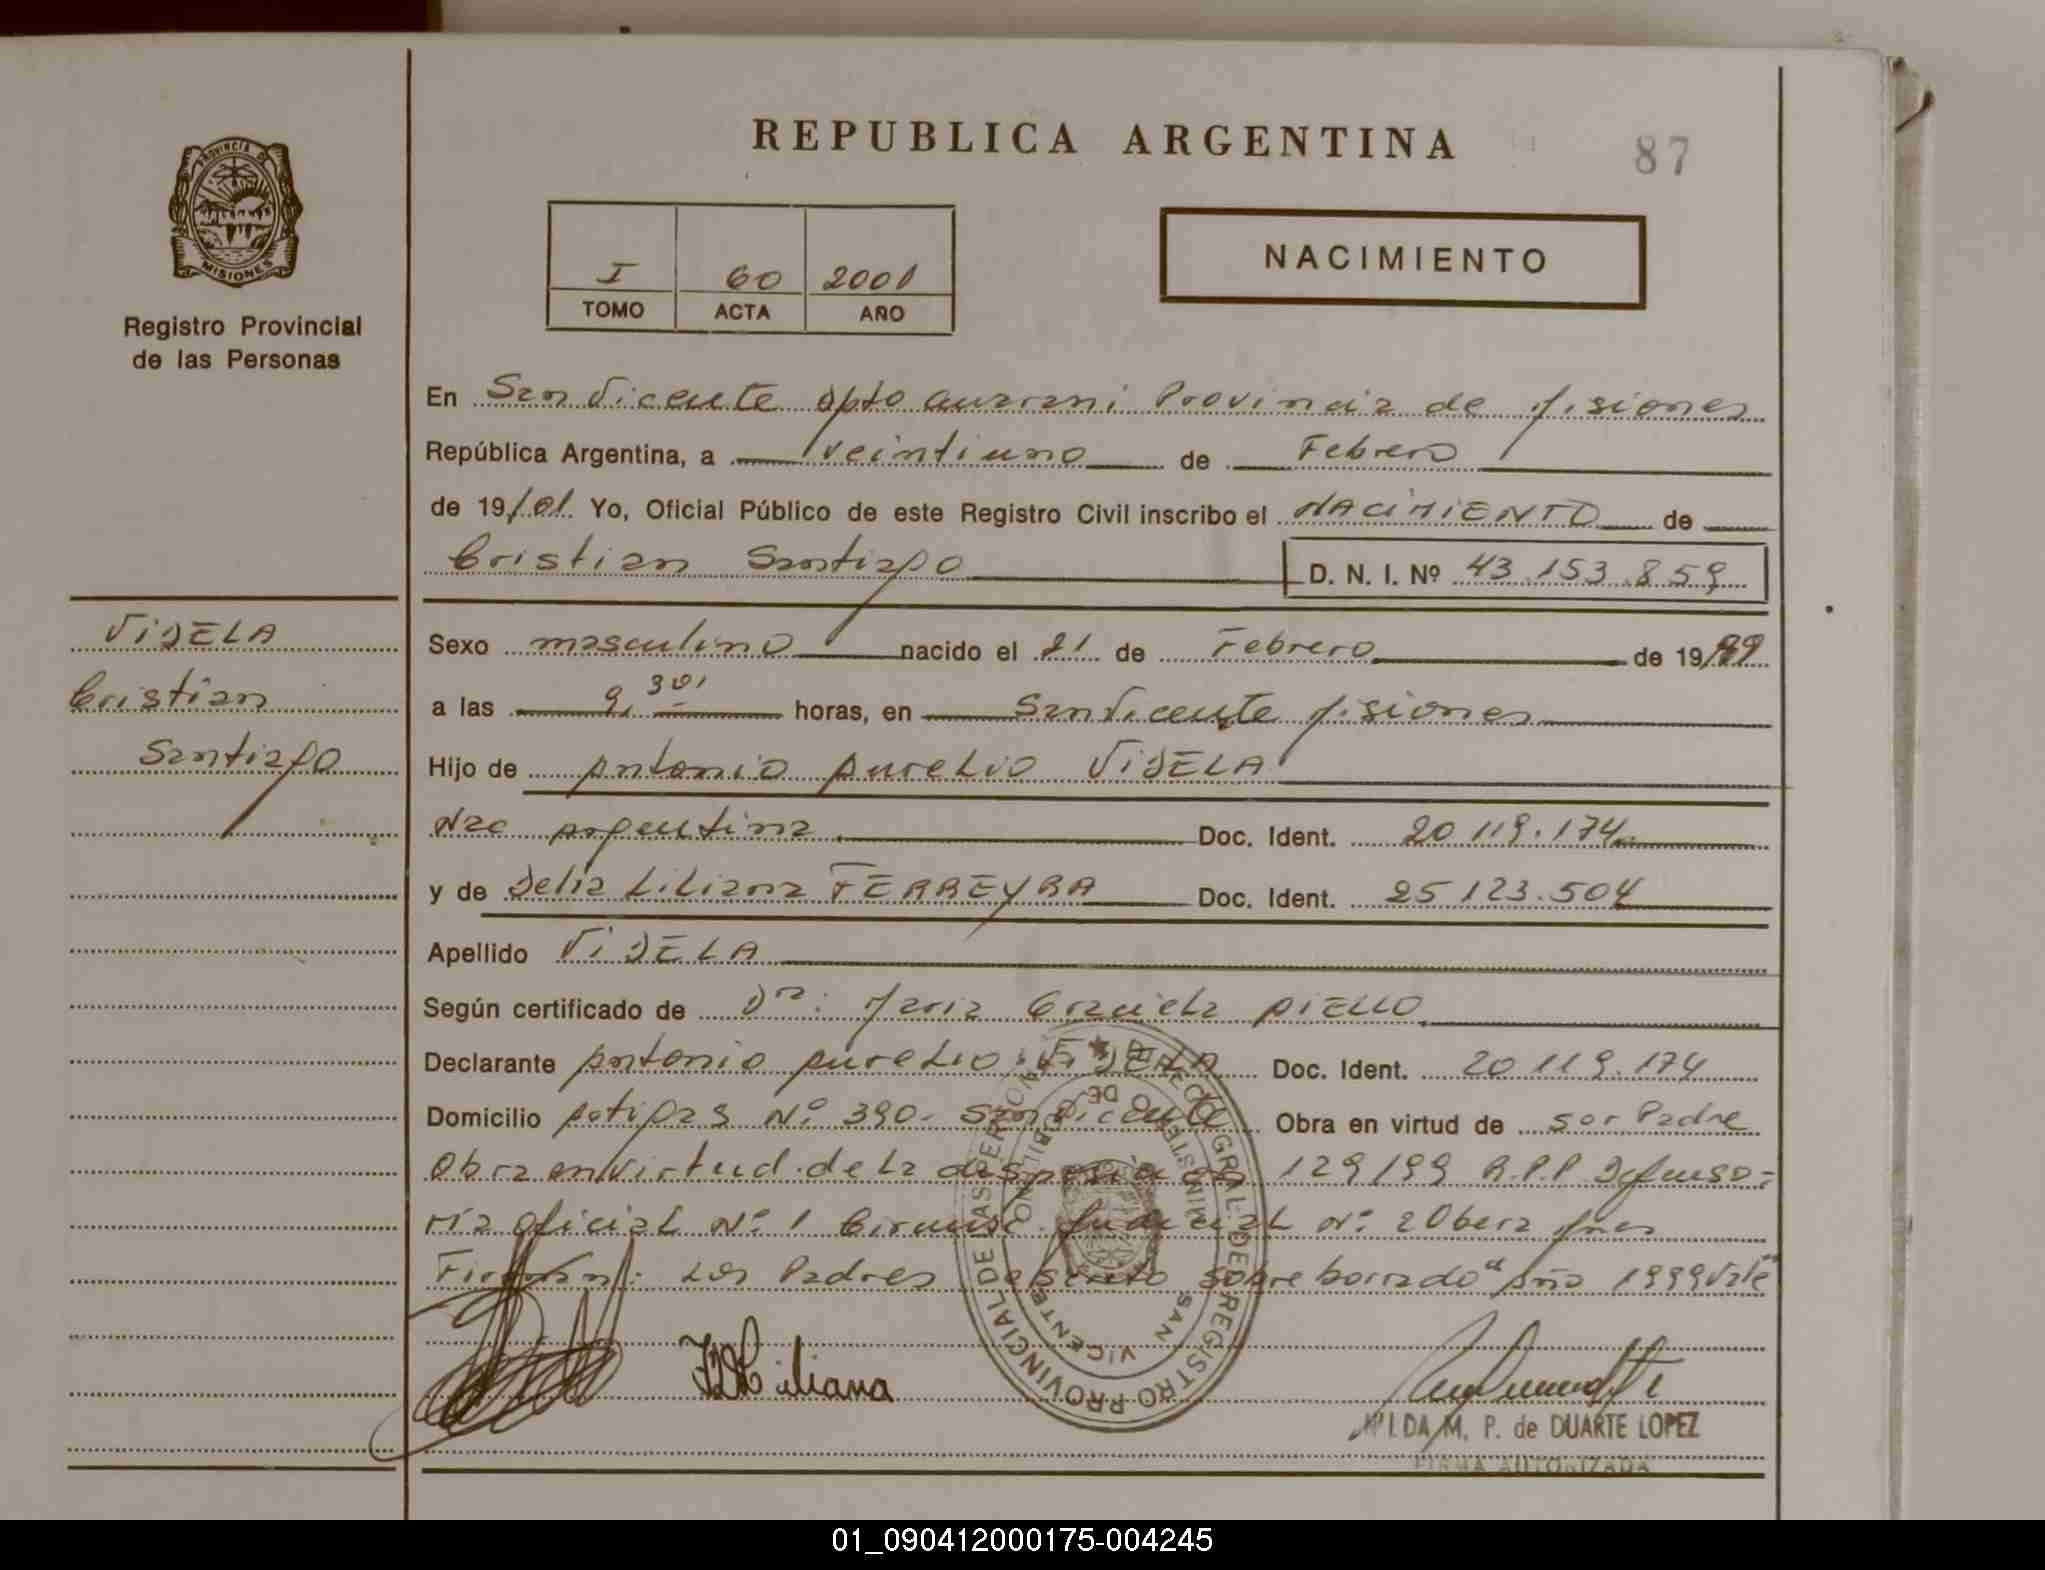 REPUBLICA ARGENTINA
87
PROVINCIA DE
MISIONES
Registro Provincial
de las Personas
I 60 2001
TOMO ACTA AÑO
NACIMIENTO
En San Vicente Dpto Guarani Provincia de Misiones
República Argentina, a veintiuno de Febrero
de 19/01 Yo, Oficial Público de este Registro Civil inscribo el NACIMIENTO de
Cristian Santiago D. N. I. Nº 43.153.859
VIDELA
Cristian
Santiago
Sexo masculino nacido el 21 de Febrero de 19/99
a las 9,30 horas, en San Vicente Misiones
Hijo de Antonio Aurelio VIDELA
Nac Argentina Doc. Ident. 20 119.174
y de Delia Liliana FERREYRA Doc. Ident. 25 123.504
Apellido VIDELA
Según certificado de Dra: Maria Graciela AIELLO
Declarante Antonio Aurelio VIDELA Doc. Ident. 20 119.174
Domicilio Potigas Nº 390- San Vicente Obra en virtud de ser Padre
Obra en virtud de la disposición 129/99 R.P.P Defenso=
ria Oficial Nº 1 Circunsc. Judicial Nº 2 Obera Mnes
Firman: Los Padres sobre borrado "Año 1999 Vale"
DIRECC. GRAL. DEL REGISTRO PROVINCIAL DE LAS PERSONAS
MINISTERIO DE GOBIERNO
SAN VICENTE
Liliana
M. P. de DUARTE LOPEZ
FIRMA AUTORIZADA
01_090412000175-004245